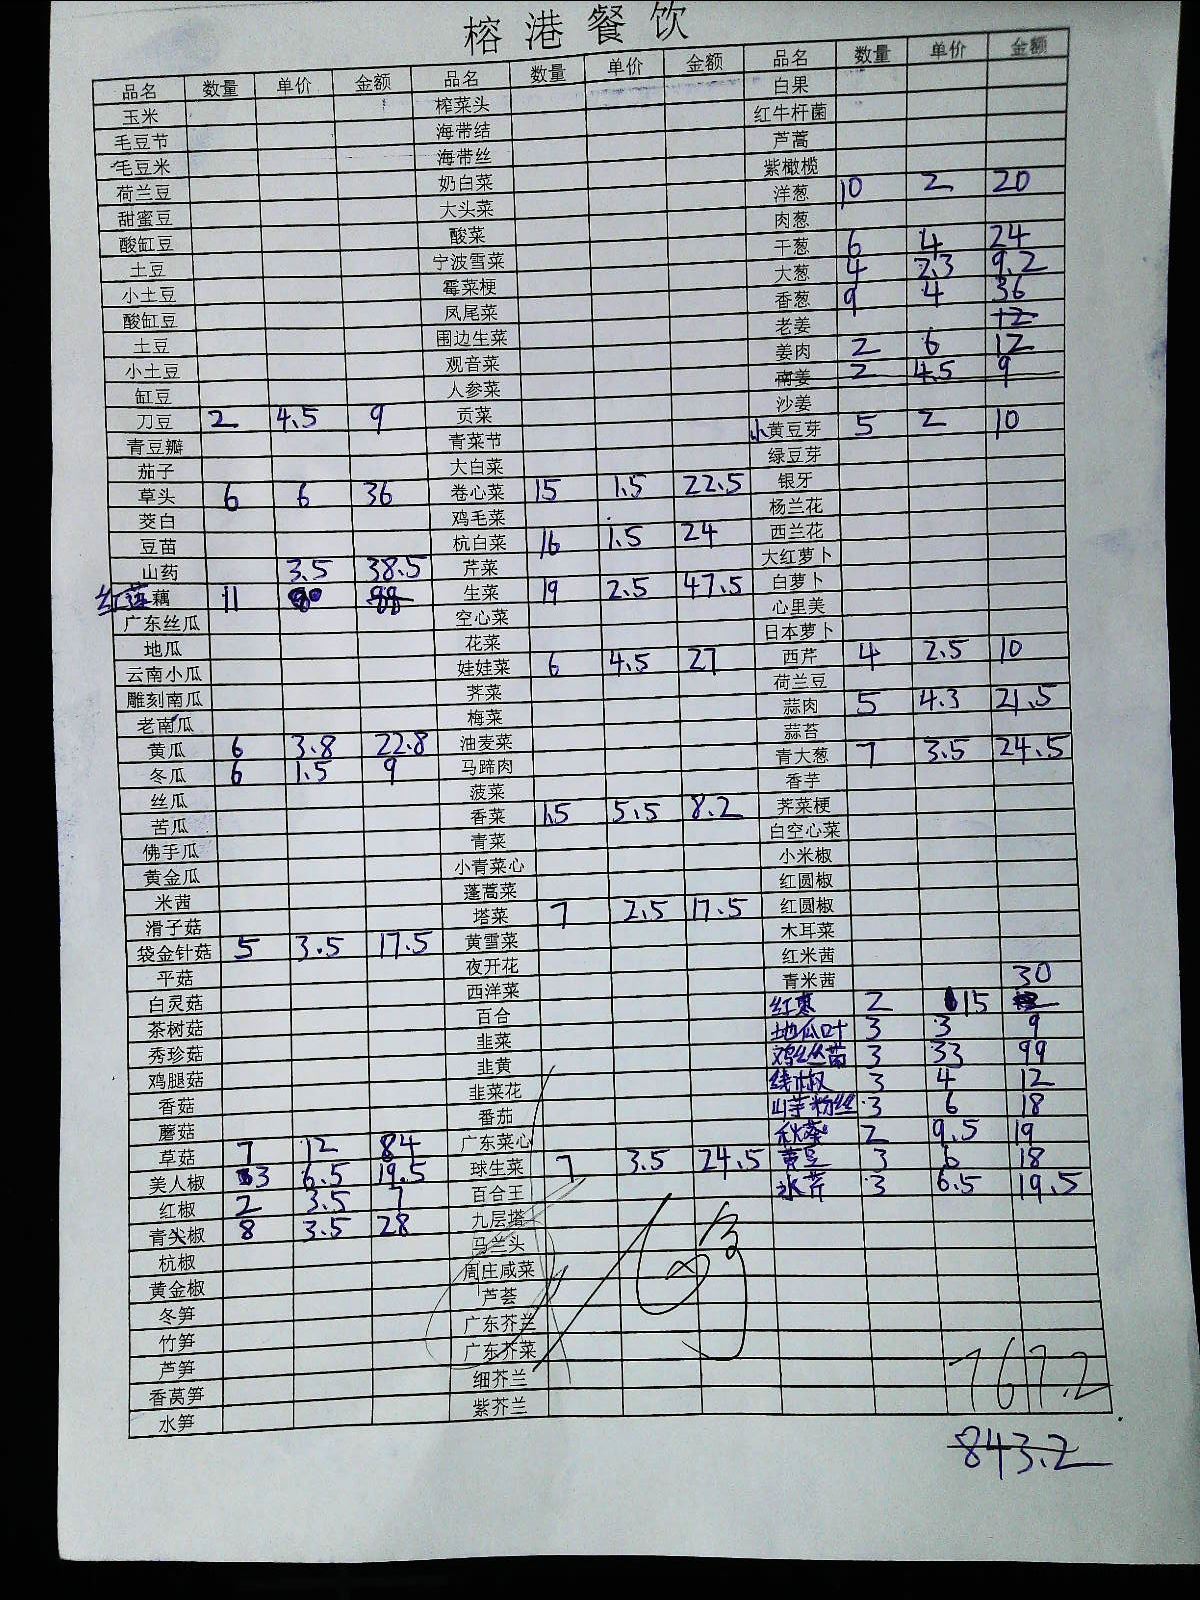 榕港餐饮
品名 数量 单价 金额 品名 数量 单价 金额 品名 数量 单价 金额
玉米 榨菜头 白果
毛豆节 海带结 红牛杆菌
毛豆米 海带丝 芦蒿
荷兰豆 奶白菜 紫橄榄
甜蜜豆 大头菜 洋葱 10 2 20
酸缸豆 酸菜 肉葱
土豆 宁波雪菜 干葱 6 4 24
小土豆 霉菜梗 大葱 4 2.3 9.2
酸缸豆 凤尾菜 香葱 9 4 36
土豆 围边生菜 老姜 12
小土豆 观音菜 姜肉 2 6 12
缸豆 人参菜 南姜 2 4.5 9
刀豆 2 4.5 9 贡菜 沙姜
青豆瓣 青菜节 小黄豆芽 5 2 10
茄子 大白菜 绿豆芽
草头 6 6 36 卷心菜 15 1.5 22.5 银牙
茭白 鸡毛菜 杨兰花
豆苗 杭白菜 16 1.5 24 西兰花
山药 3.5 38.5 芹菜 大红萝卜
红莲藕 11 生菜 19 2.5 47.5 白萝卜
广东丝瓜 空心菜 心里美
地瓜 花菜 日本萝卜
云南小瓜 娃娃菜 6 4.5 27 西芹 4 2.5 10
雕刻南瓜 荠菜 荷兰豆
老南瓜 梅菜 蒜肉 5 4.3 21.5
黄瓜 6 3.8 22.8 油麦菜 蒜苔
冬瓜 6 1.5 9 马蹄肉 青大葱 7 3.5 24.5
丝瓜 菠菜 香芋
苦瓜 香菜 1.5 5.5 8.2 荠菜梗
佛手瓜 青菜 白空心菜
黄金瓜 小青菜心 小米椒
米茜 蓬蒿菜 红圆椒
滑子菇 塔菜 7 2.5 17.5 红圆椒
袋金针菇 5 3.5 17.5 黄雪菜 木耳菜
平菇 夜开花 红米茜
白灵菇 西洋菜 青米茜 30
茶树菇 百合 红枣 2 15
秀珍菇 韭菜 地瓜叶 3 3 9
鸡腿菇 韭黄 鸡丝菌 3 33 99
香菇 韭菜花 线椒 3 4 12
蘑菇 番茄 山芋粉丝 3 6 18
草菇 7 12 84 广东菜心 秋葵 2 9.5 19
美人椒 3 6.5 19.5 球生菜 7 3.5 24.5 黄豆 3 6 18
红椒 2 3.5 7 百合王 水芹 3 6.5 19.5
青尖椒 8 3.5 28 九层塔
杭椒 马兰头
黄金椒 周庄咸菜
冬笋 芦荟
竹笋 广东芥兰
芦笋 广东芥菜
香莴笋 细芥兰 767.2
水笋 紫芥兰
843.2